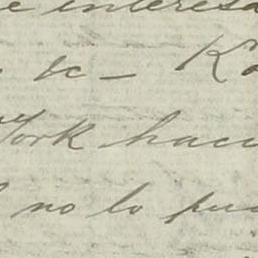 e interesa
&c — Ka
York haci
no lo pue